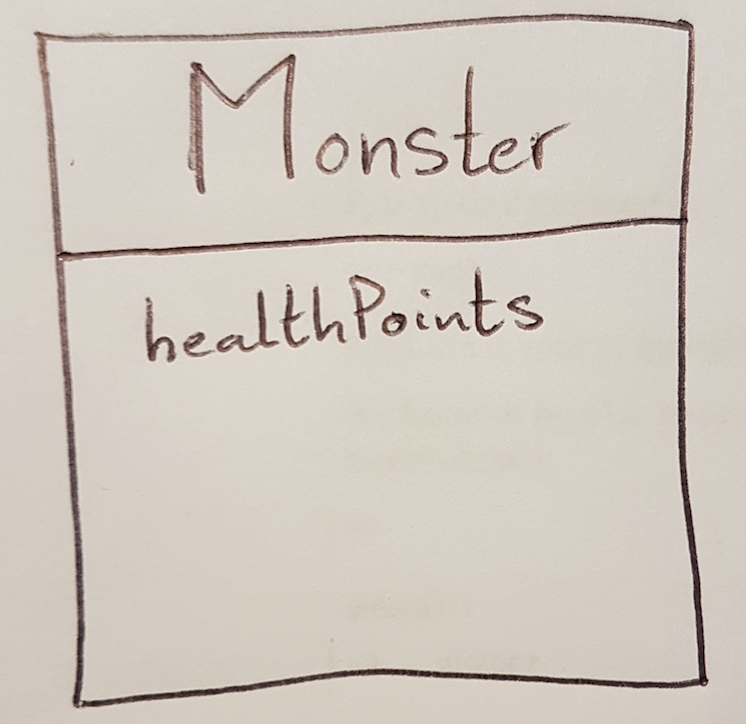 Monster
healthPoints